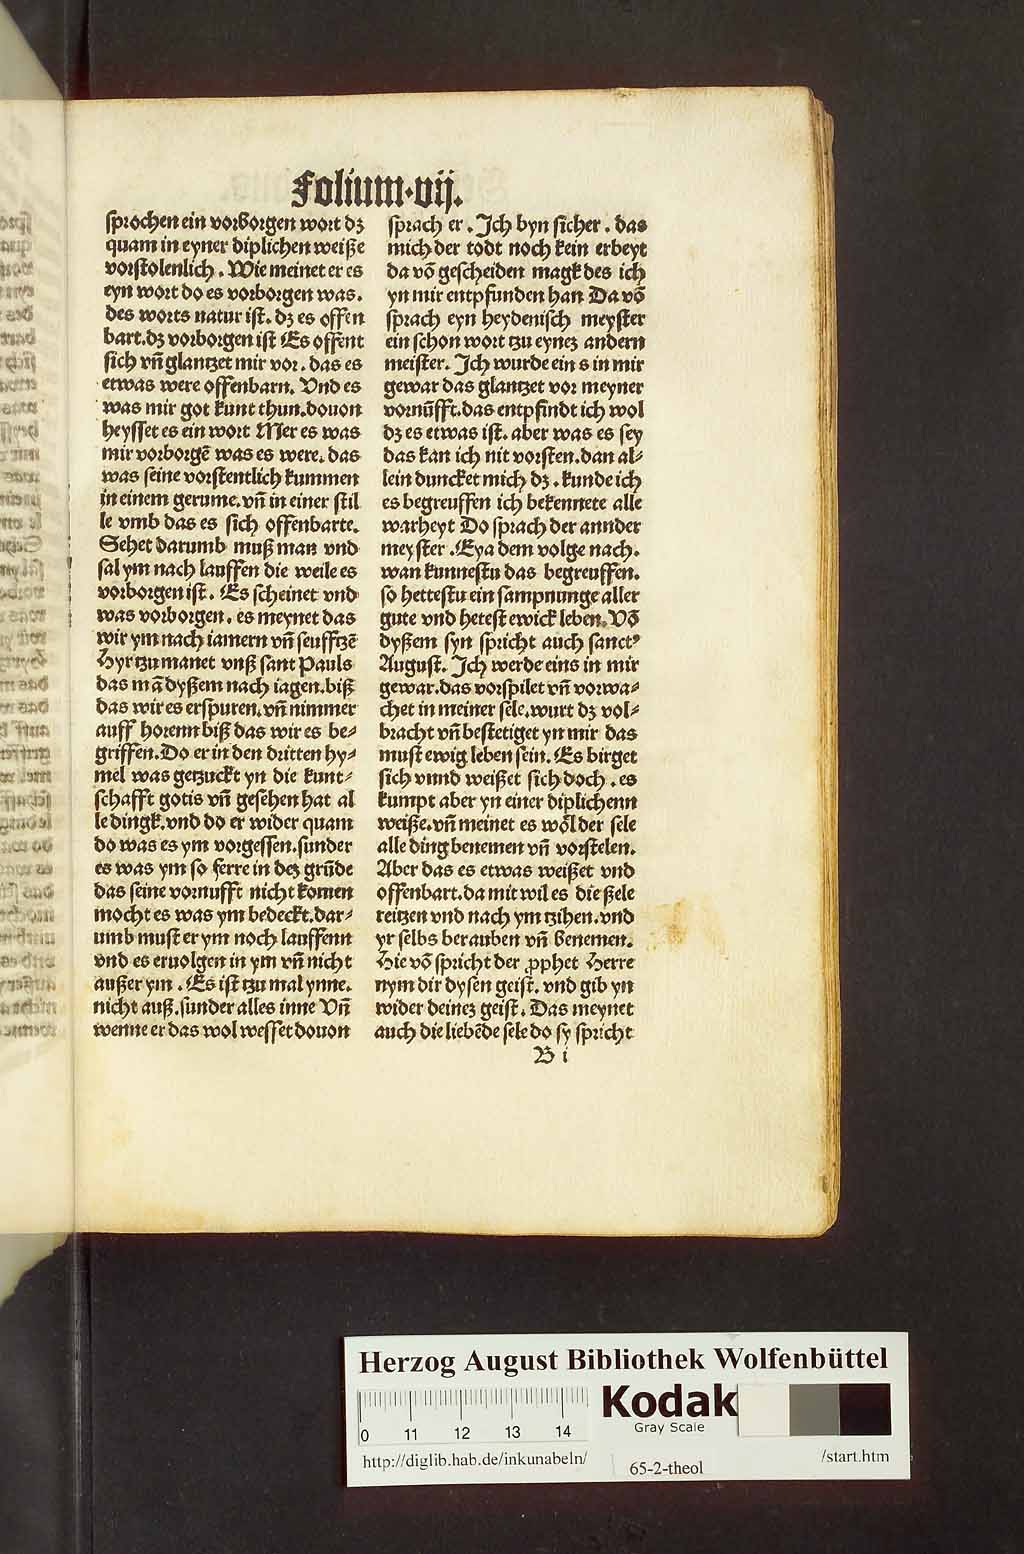 Folium·vij.
sprochen ein vorborgen wort dʒ
quam in eyner diplichen weiße
vorstolenlich. Wie meinet er es
eyn wort do es vorborgen was.
des worts natur ist. dʒ es offen
bart. dʒ vorborgen ist Es offent
sich vñ glantzet mir vor. das es
etwas were offenbarn. Vnd es
was mir got kunt thun. douon
heysset es ein wort Mer es was
mir vorborgē was es were. das
was seine vorstentlich kummen
in einem gerume. vñ in einer stil
le vmb das es sich offenbarte.
Sehet darumb muß man vnd
sal ym nach lauffen die weile es
vorborgen ist. Es scheinet vnd
was vorborgen. es meynet das
wir ym nach iamern vñ seufftzē
Hyr tzu manet vnß sant Pauls
das mā dyßem nach iagen. biß
das wir es erspuren. vñ nimmer
auff horenn biß das wir es be⸗
griffen. Do er in den dritten hy⸗
mel was getzuckt yn die kunt⸗
schafft gotis vñ gesehen hat al
le dingk. vnd do er wider quam
do was es ym vorgessen. sunder
es was ym so ferre in deʒ grūde
das seine vornufft nicht komen
mocht es was ym bedeckt. dar⸗
umb must er ym noch lauffenn
vnd es eruolgen in ym vñ nicht
außer ym. Es ist tzu mal ynne.
nicht auß. sunder alles inne Vñ
wenne er das wol wesset douon
sprach er. Ich byn sicher. das
mich der todt noch kein erbeyt
da vō gescheiden magk des ich
yn mir entpfunden han Da vō
sprach eyn heydenisch meyster
ein schon wort tzu eyneʒ andern
meister. Ich wurde ein s in mir
gewar das glantzet vor meyner
vornūfft. das entpfindt ich wol
dʒ es etwas ist. aber was es sey
das kan ich nit vorsten. dan al⸗
lein duncket mich dʒ. kunde ich
es begreuffen ich bekennete alle
warheyt Do sprach der annder
meyster. Eya dem volge nach.
wan kunnestu das begreuffen.
so hettestu ein sampnunge aller
gute vnd hetest ewick leben. Vō
dyßem syn spricht auch sanctꝰ
August. Ich werde eins in mir
gewar. das vorspilet vñ vorwa⸗
chet in meiner sele. wurt dʒ vol⸗
bracht vñ bestetiget yn mir das
must ewig leben sein. Es birget
sich vnnd weißet sich doch. es
kumpt aber yn einer diplichenn
weiße. vñ meinet es wol der sele
alle ding benemen vñ vorstelen.
Aber das es etwas weißet vnd
offenbart. da mit wil es die ßele
reitzen vnd nach ym tzihen. vnd
yr selbs berauben vñ benemen.
Hie vō spricht der ꝓphet Herre
nym dir dysen geist. vnd gib yn
wider deineʒ geist. Das meynet
auch die liebēde sele do sy spricht
B i
Herzog August Bibliothek Wolfenbüttel
0 11 12 13 14
Kodak
Gray Scale
http://diglib.hab.de/inkunabeln/
65-2-theol
/start.htm